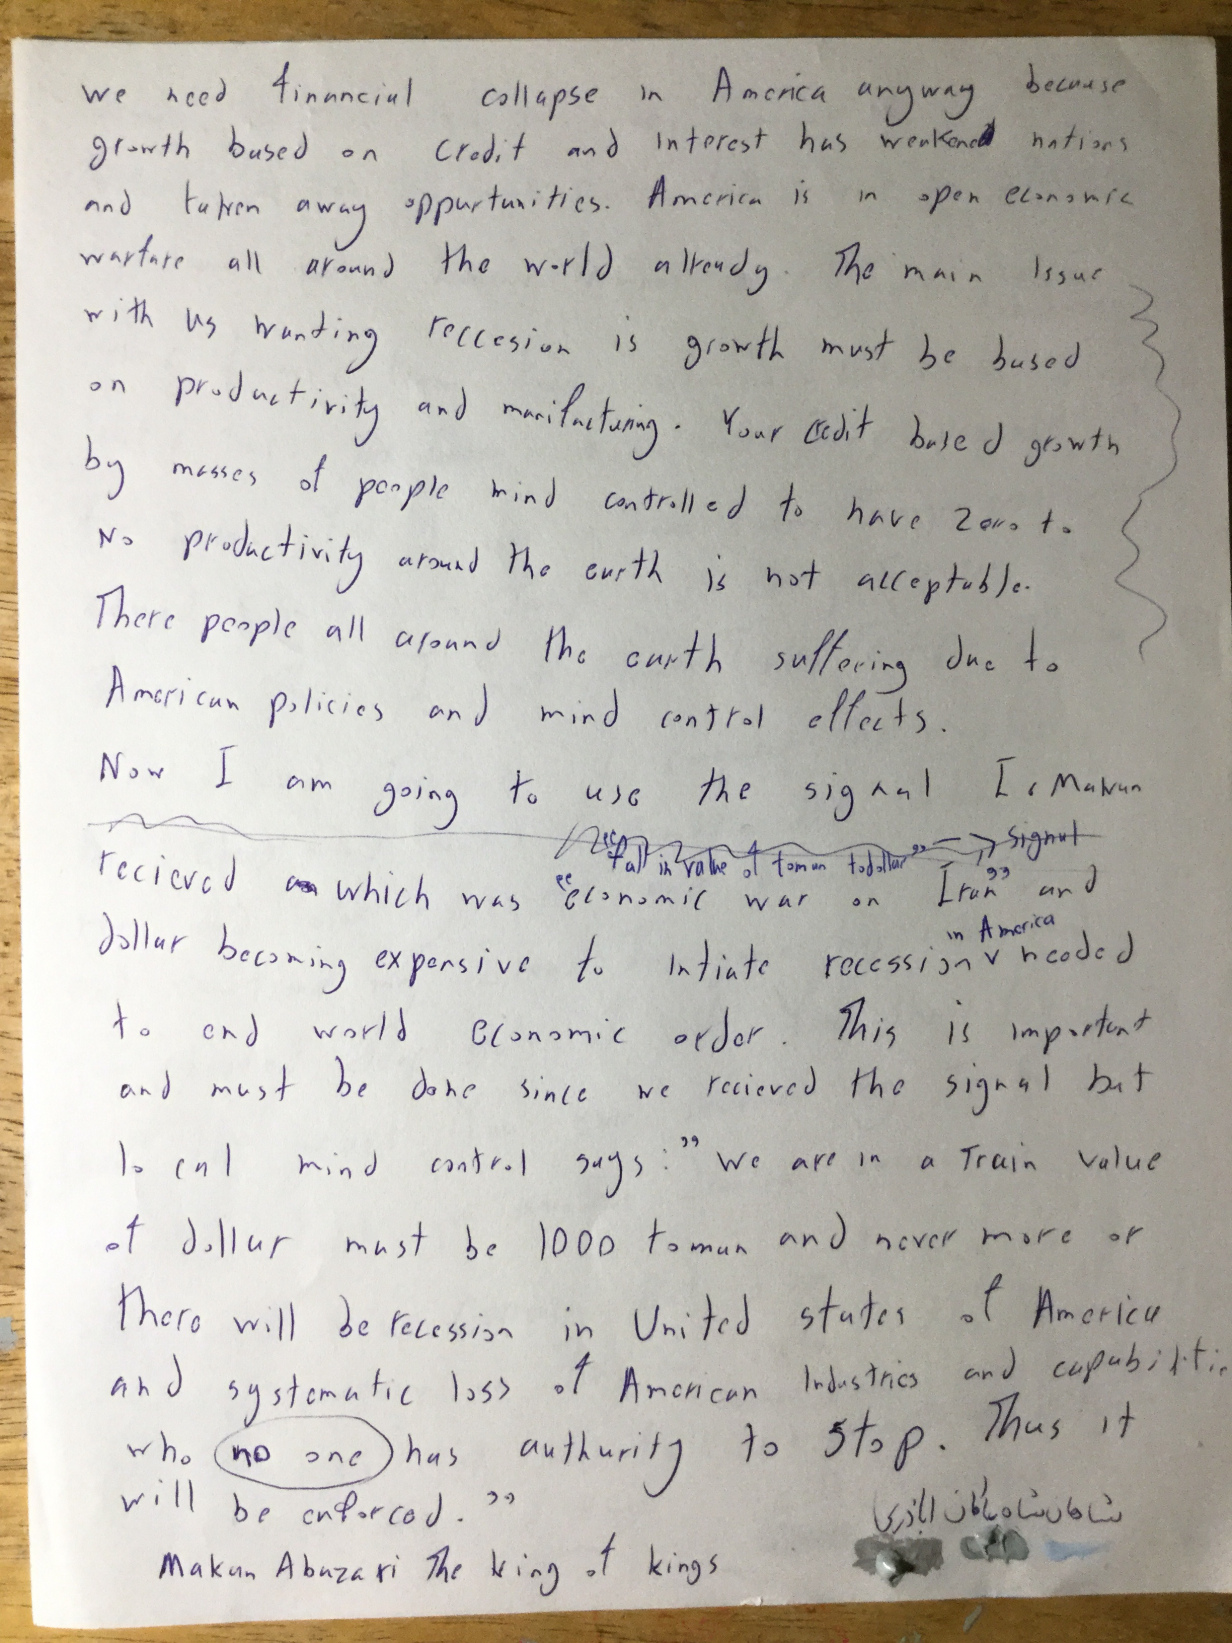 we need financial collapse in America anyway because
growth based on credit and interest has weakened nations
and taken away oppurtunities. America is in open economic
warfare all around the world already. The main Issue
with us wanting reccesion is growth must be based
on productivity and manifacturing. Your credit based growth
by masses of people mind controlled to have zero to
No productivity around the earth is not acceptable.
There people all around the earth suffering due to
American policies and mind control effects.
Now I am going to use the signal I, Makan
"fall in value of toman to dollar" → signal
recieved which was "economic war on Iran" and
in America
dollar becoming expensive to Intiate recession v needed
to end world economic order. This is important
and must be done since we recieved the signal but
local mind control says:" We are in a Train value
of dollar must be 1000 toman and never more or
there will be recession in United states of America
and systematic loss of American Industries and capabilitie
who no one has authurity to stop. Thus it
will be enforced."
شاهان شاه ماکان اباذری
Makan Abazari The king of kings